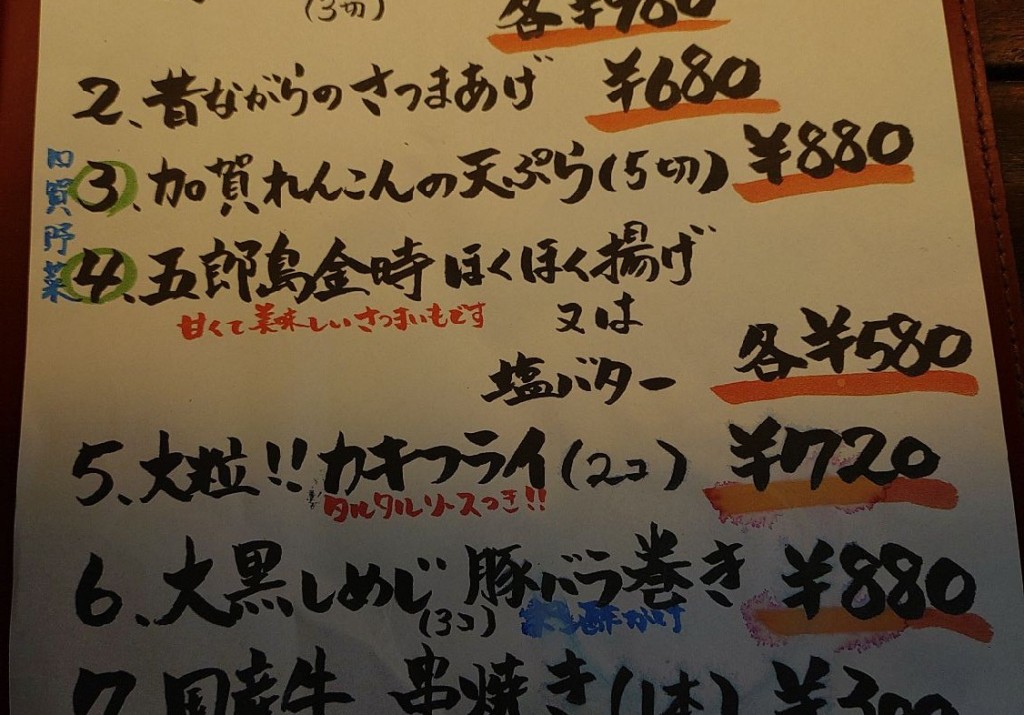 (3切)
各¥980
2、昔ながらのさつまあげ ¥680
加賀野菜
3、加賀れんこんの天ぷら(5切) ¥880
4、五郎島金時ほくほく揚げ
甘くて美味しいさつまいもです
又は
塩バター 各¥580
5、大粒!!カキフライ(2コ) ¥720
タルタルソースつき!!
6、大黒しめじ豚バラ巻き ¥880
(3コ) 酢がけ
7、国産牛 串焼き(1本) ¥300